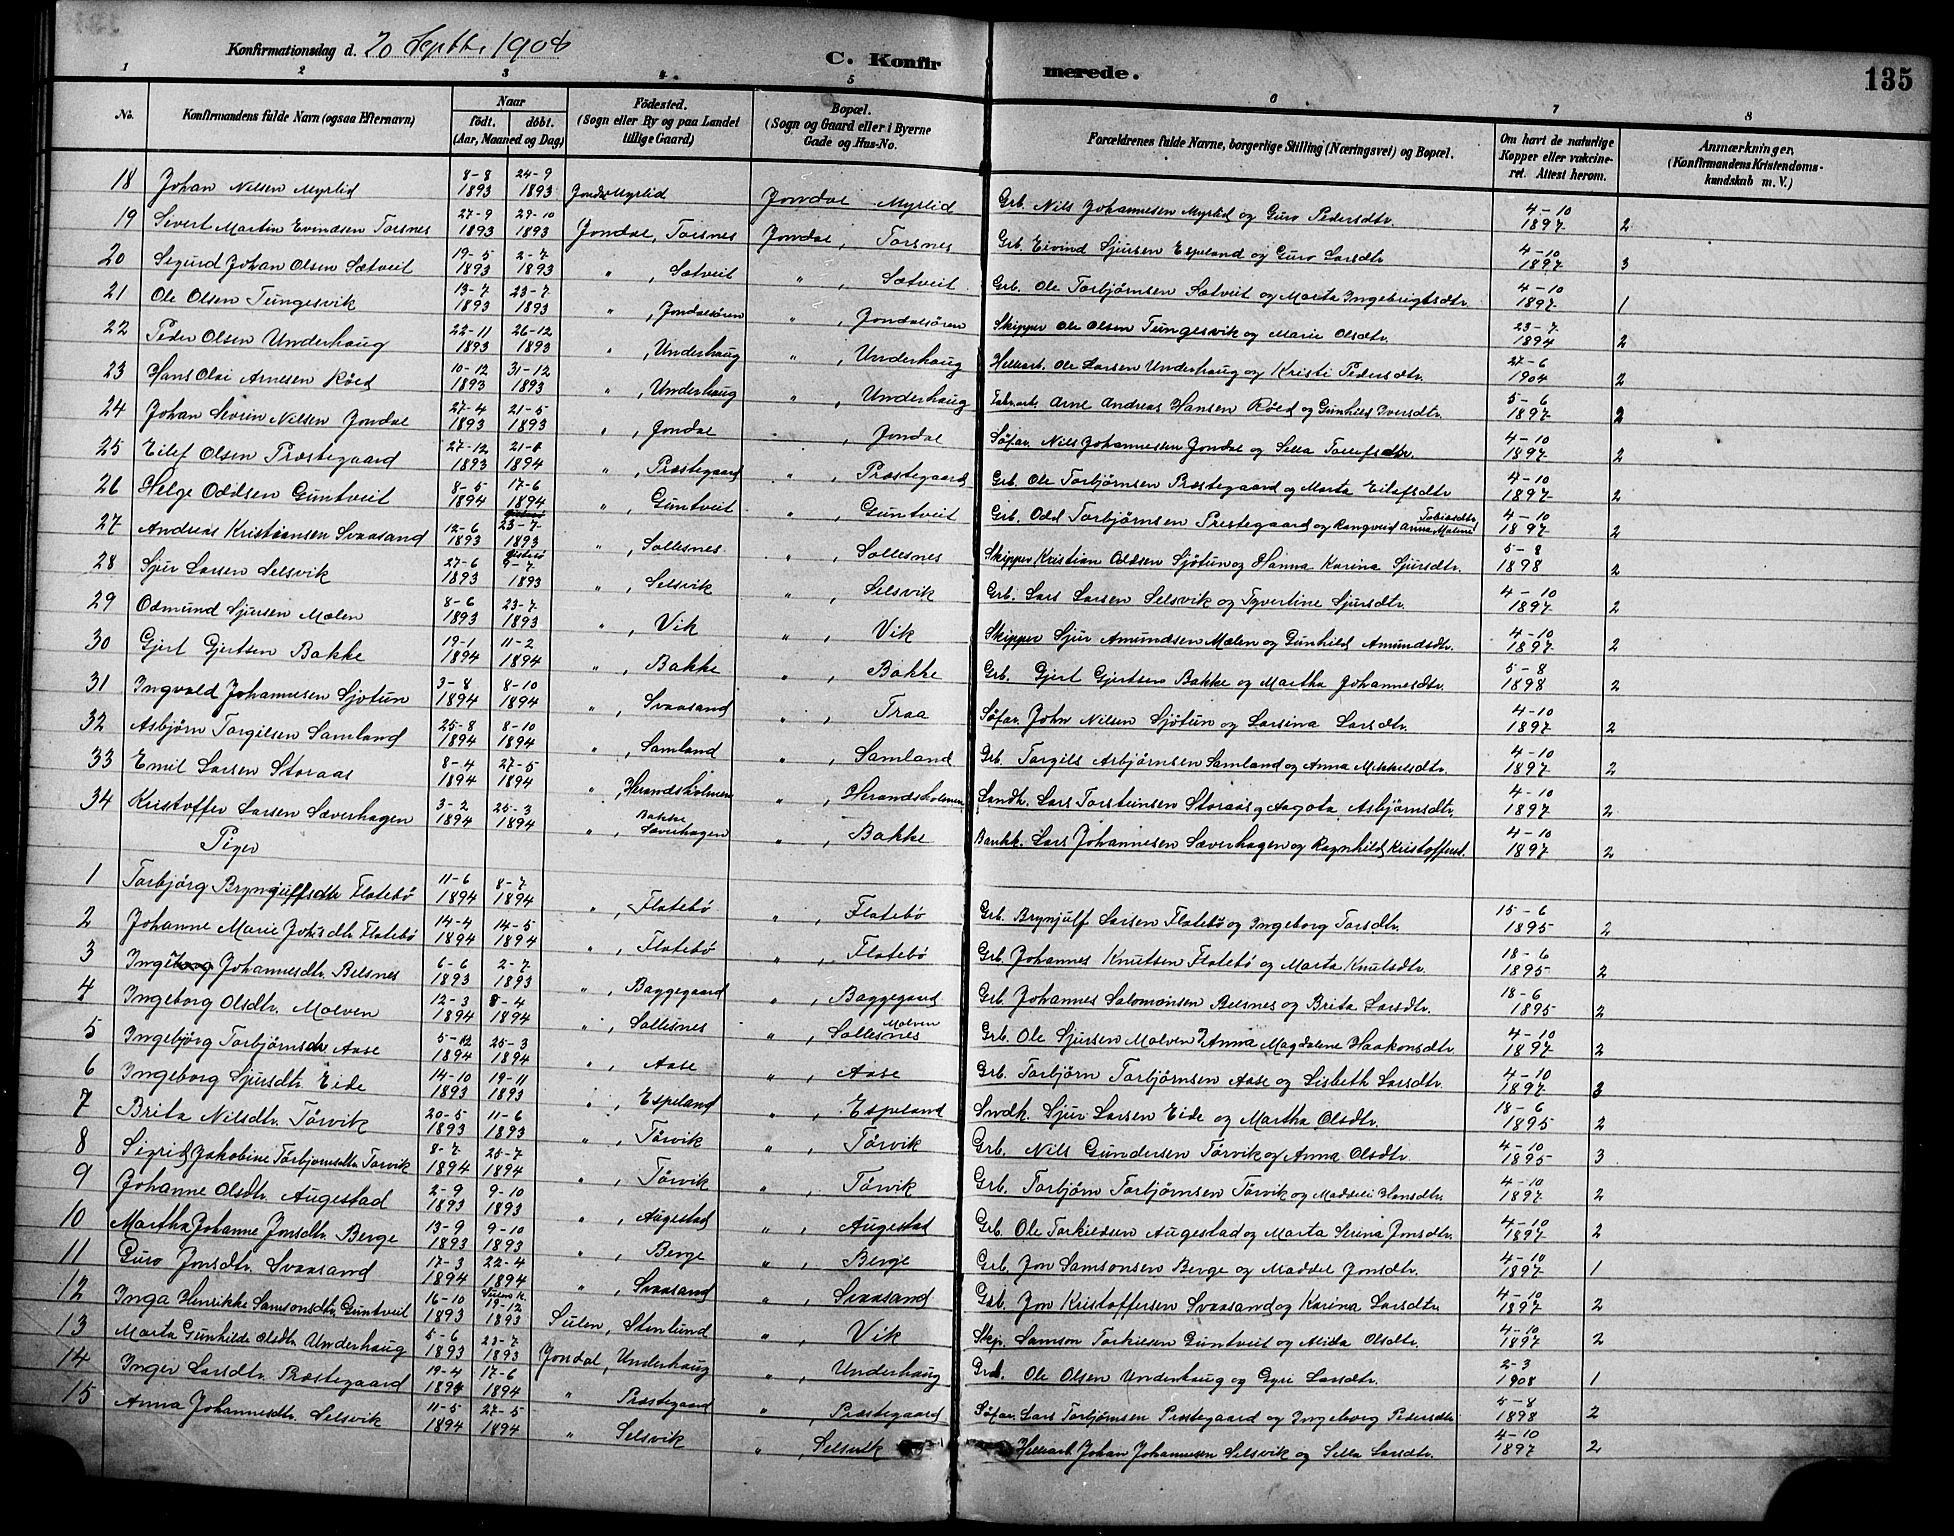 Konfirmationsdag d. 20 Septbr. 1908
C. Konfirmerede.
135
1 2 3 4 5 6 7 8
No. Konfirmandens fulde Navn (ogsaa Efternavn) Naar født. døbt. (Aar, Maaned og Dag) Fødested. (Sogn eller By og paa Landet tillige Gaard) Bopæl. (Sogn og Gaard eller i Byerne Gade og Hus-No. Forældrenes fulde Navne, borgerlige Stilling (Næringsvei) og Bopæl. Om havt de naturlige Kopper eller vakcineret. Attest herom. Anmærkninger. (Konfirmandens Kristendomskundskab m. V.)
18 Johan Nilsen Myrlid 8-8 1893 24-9 1893 Jondal Myrlid Jondal Myrlid Grb. Nils Johannesen Myrlid og Guro Pedersdtr. 4-10 1897 2
19 Sivert Martin Evindsen Torsnes 27-9 1893 29-10 1893 Jondal, Torsnes Jondal, Torsnes Grb. Eivind Sjursen Espeland og Guro Larsdtr 4-10 1897 3
20 Sigurd Johan Olsen Sætveit 19-5 1893 2-7 1893 " , Sætveit " Sætveit Grb. Ole Torbjørnsen Sætveit og Marta Ingebrigtsdtr. 4-10 1897 1
21 Ole Olsen Tungesvik 13-7 1893 23-7 1893 " , Jondalsøren " Jondalsøren Skipper Ole Olsen Tungesvik og Marie Olsdtr. 23-7 1894 2
22 Peder Olsen Underhaug 22-11 1893 26-12 1893 " , Underhaug " , Underhaug Ole Larsen Underhaug og Kristi Pedersdtr. 27-6 1904 2
23 Hans Olai Arnesen Røed 10-12 1893 31-12 1893 " , Underhaug " , Underhaug Fabrarb. Arne Andreas Hansen Røed og Gunhild Iversdtr. 5-6 1897 2
24 Johan Sevrin Nilsen Jondal 27-4 1893 21-5 1893 " , Jondal , Jondal Søfar. Nils Johannesen Jondal og Sella 4-10 1897 2
25 Eilef Olsen Præstegaard 27-12 1893 1894 " , Præstegaard " , Præstegaard Grb. Ole Torbjørnsen Præstegaard og Marta Eilefsdtr 4-10 1897 2
26 Helge Oddsen Guntveit 8-5 1894 17-6 1894 " , Guntveit " , Guntveit Grb. Odd Torbjørnsen Prestegaard og Rangveid Anna Malene Tobiasdtr 4-10 1897 2
27 Andreas Kristiansen Svaasand 12-6 1893 23-7 1893 " , Sollesnes " , Sollesnes Skipper Kristian Oddsen Sjøtun og Hanna Karina Sjursdtr. 5-8 1898 2
28 Sjur Larsen Selsvik 27-6 1893 9-7 1893 " , Selsvik " , Selsvik Grb. Lars Larsen Selsvik og Tyvertine Sjursdtr. 4-10 1897 2
29 Odmund Sjursen Mælen 8-6 1893 23-7 1893 " , Vik " , Vik Skipper Sjur Amundsen Mælen og Gunhild Amundsdtr. 4-10 1897 2
30 Gjert Gjertsen Bakke 19-1 1894 11-2 1894 " , Bakke " , Bakke Grb. Gjert Gjertsen Bakke og Martha Johannesdtr. 5-8 1898 2
31 Ingvald Johannesen Sjøtun 3-8 1894 8-10 1894 " , Svaasand " , Traa Søfar. John Nilsen Sjøtun og Larsina Larsdtr. 4-10 1897 2
32 Asbjørn Torgilsen Samland 25-8 1894 8-10 1894 " , Samland " , Samland Grb. Torgils Asbjørnsen Samland og Anna Mikkelsdtr. 4-10 1897 2
33 Emil Larsen Storaas 8-4 1894 27-5 1894 " , Herandsholmen " , Herandsholmen Landh. Lars Torsteinsen Storaas og Aagota Asbjørnsdtr. 4-10 1897 2
34 Kristoffer Larsen Sæverhagen 3-2 1894 25-3 1894 " , Bakke Sæverhagen " , Bakke Lars Johannesen Sæverhagen og Ragnhild Kristoffersd. 4-10 1897 2
Piger
1 Torbjørg Brynjulfsdtr Flatebø 11-6 1894 8-7 1894 " , Flatebø " , Flatebø Grb. Brynjulf Larsen Flatebø og Ingeborg Torsdtr. 15-6 1895 2
2 Johanne Marie Johsdtr Flatebø 14-4 1894 14-5 1894 " , Flatebø " , Flatebø Grb. Johannes Knutsen Flatebø og Marta Knutsdtr. 18-6 1895 2
3 Johannesdtr. Belsnes 6-6 1893 2-7 1893 " , Baggegaard " , Baggegaard Grb. Johannes Salomonsen Belsnes og Brita Larsdtr. 18-6 1895 2
4 Ingeborg Olsdtr. Molven 12-3 1894 8-4 1894 " , Sollesnes " , Sollesnes Molven Grb. Ole Sjursen Molven Anna Magdalene Haakonsdtr. 4-10 1897 2
5 Ingebjørg Torbjørnsdtr Aase 1894 25-3 1894 " , Aase " , Aase Grb. Torbjørn Torbjørnsen Aase og Lisbeth Larsdtr. 4-10 1897 3
6 Ingeborg Sjursdtr. Eide 14-10 1893 19-11 1893 " , Espeland " , Espeland Smdh. Sjur Larsen Eide og Martha Olsdtr. 18-6 1895 2
7 Brita Nilsdtr. Tørvik 20-5 1893 11-6 1893 " , Tørvik " , Tørvik Grb. Nils Gundersen Tørvik og Anna Olsdtr. 4-10 1895 3
8 Sigrid Jakobine Torbjørnsdtr Tørvik 8-7 1894 25-7 1894 " , Tørvik " , Tørvik Grb. Torbjørn Torbjørnsen Tørvik og Maddeli Hansdtr. 4-10 1897 2
9 Johanne Olsdtr. Augestad 2-9 1893 9-10 1893 " , Augestad " , Augestad Grb. Ole Torkildsen Augestad og Marta Serina Jonsdtr. 4-10 1897 2
10 Martha Johanne Jonsdtr. Berge 13-9 1893 9-10 1893 " , Berge " , Berge Grb. Jon Samsonsen Berge og Maddel Jonsdtr. 4-10 1897 1
11 Guro Jonsdtr. Svaasand 17-3 1894 22-4 1894 " , Svaasand " , Svaasand Grb. Jon Kristoffersen Svaasand og Karina Larsdtr. 4-10 1897 2
12 Inga Henrikke Samsonsdtr. Guntveit 16-10 1893 1893 Sulen, Stenlund " , Vik Skp. Samson Torkilsen Guntveit og Alida Olsdtr. 4-10 1897 2
13 Marta Gunhilde Olsdtr Underhaug 5-6 1893 23-7 1893 Jondal, Underhaug " , Underhaug Ole Olsen Underhaug og Gyri Larsdtr. 2-3 1908 1
14 Inger Larsdtr. Præstegaard 19-4 1894 17-6 1894 " Præstegaard " , Præstegaard Søfar. Lars Torbjørnsen Præstegaard og Ingeborg Pedersdtr 5-8 1898 2
15 Anna Johannesdtr. Selsvik 11-5 1894 27-5 1894 " Selsvik " , Selsvik Johan Johannesen Selsvik og Sella Larsdtr. 4-10 1897 2